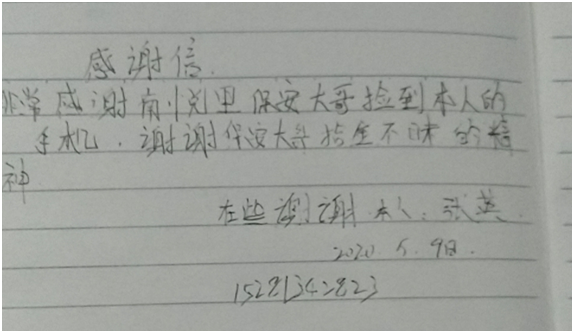 感谢信.
非常感谢南悦里保安大哥捡到本人的
手机. 谢谢保安大哥拾金不昧的精
神
在些谢谢 本人: 张英.
2020. 5. 9日.